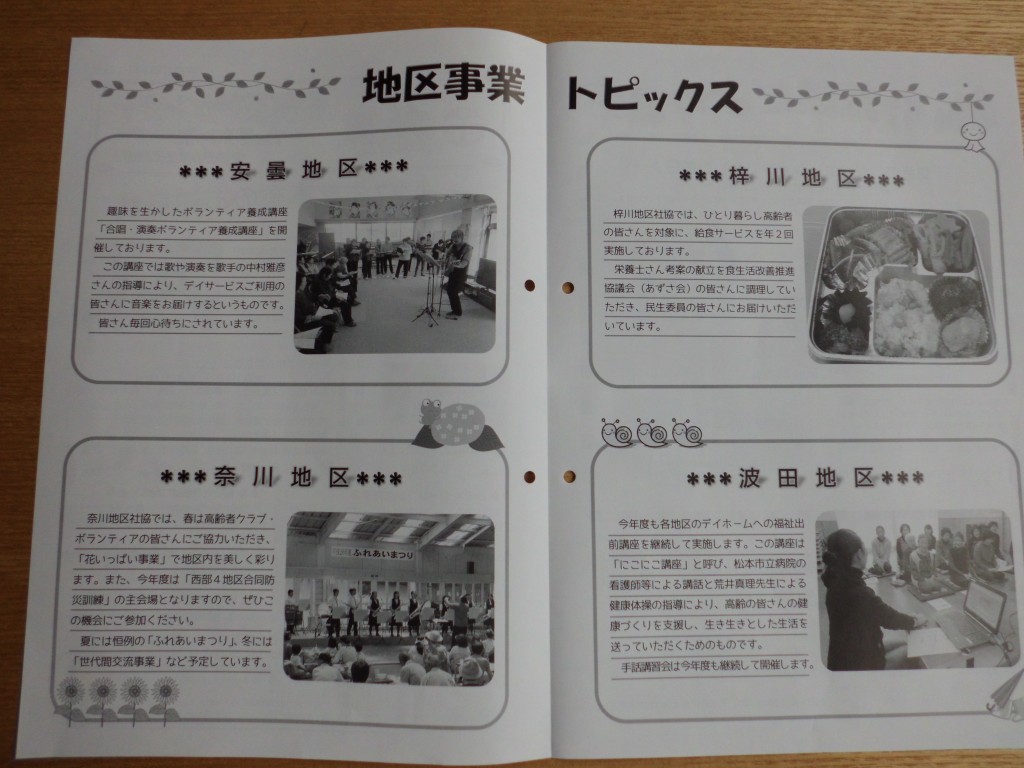 地区事業 トピックス
***安曇地区***
趣味を生かしたボランティア養成講座
「合唱・演奏ボランティア養成講座」を開
催しております。
この講座では歌や演奏を歌手の中村雅彦
さんの指導により、デイサービスご利用の
皆さんに音楽をお届けするというものです。
皆さん毎回心待ちにされています。
***奈川地区***
奈川地区社協では、春は高齢者クラブ・
ボランティアの皆さんにご協力いただき、
「花いっぱい事業」で地区内を美しく彩り
ます。また、今年度は「西部４地区合同防
災訓練」の主会場となりますので、ぜひこ
の機会にご参加ください。
夏には恒例の「ふれあいまつり」、冬には
「世代間交流事業」など予定しています。
ふれあいまつり
***梓川地区***
梓川地区社協では、ひとり暮らし高齢者
の皆さんを対象に、給食サービスを年２回
実施しております。
栄養士さん考案の献立を食生活改善推進
協議会（あずさ会）の皆さんに調理してい
ただき、民生委員の皆さんにお届けいただ
いています。
***波田地区***
今年度も各地区のデイホームへの福祉出
前講座を継続して実施します。この講座は
「にこにこ講座」と呼び、松本市立病院の
看護師等による講話と荒井真理先生による
健康体操の指導により、高齢の皆さんの健
康づくりを支援し、生き生きとした生活を
送っていただくためのものです。
手話講習会は今年度も継続して開催します。